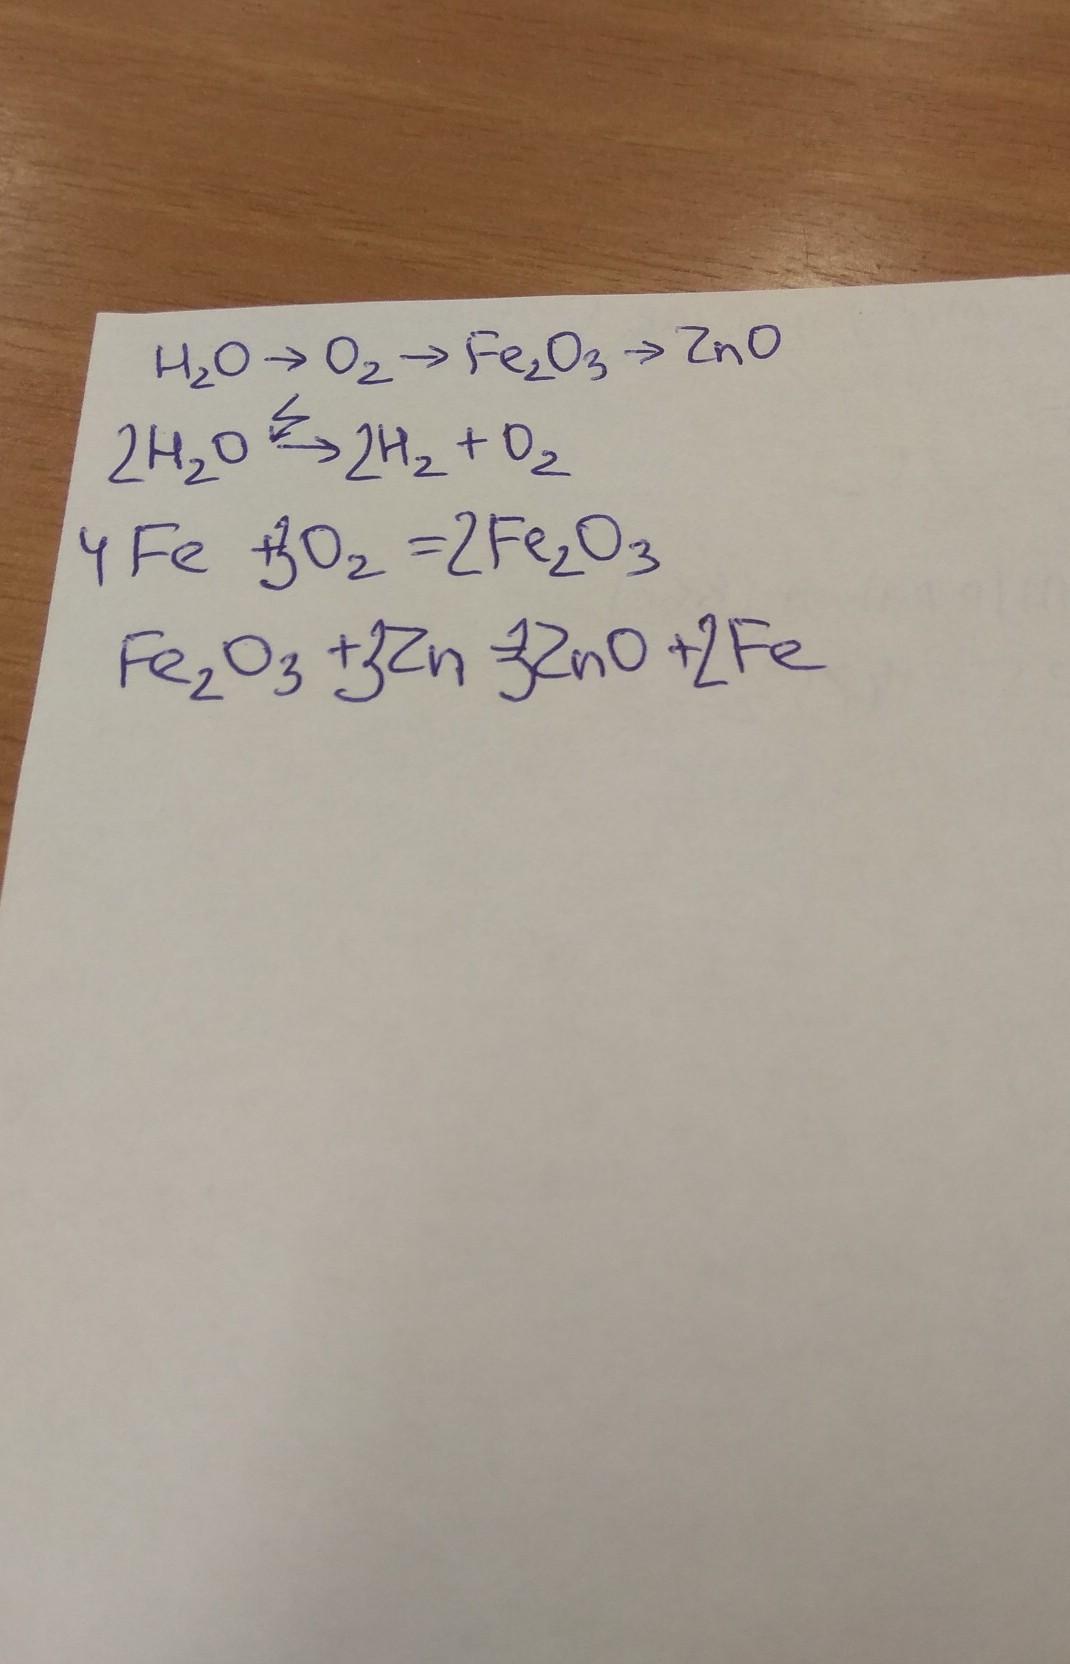 H₂O → O₂ → Fe₂O₃ → ZnO
2H₂O → 2H₂ + O₂
4Fe + 3O₂ = 2Fe₂O₃
Fe₂O₃ + 3Zn = 3ZnO + 2Fe